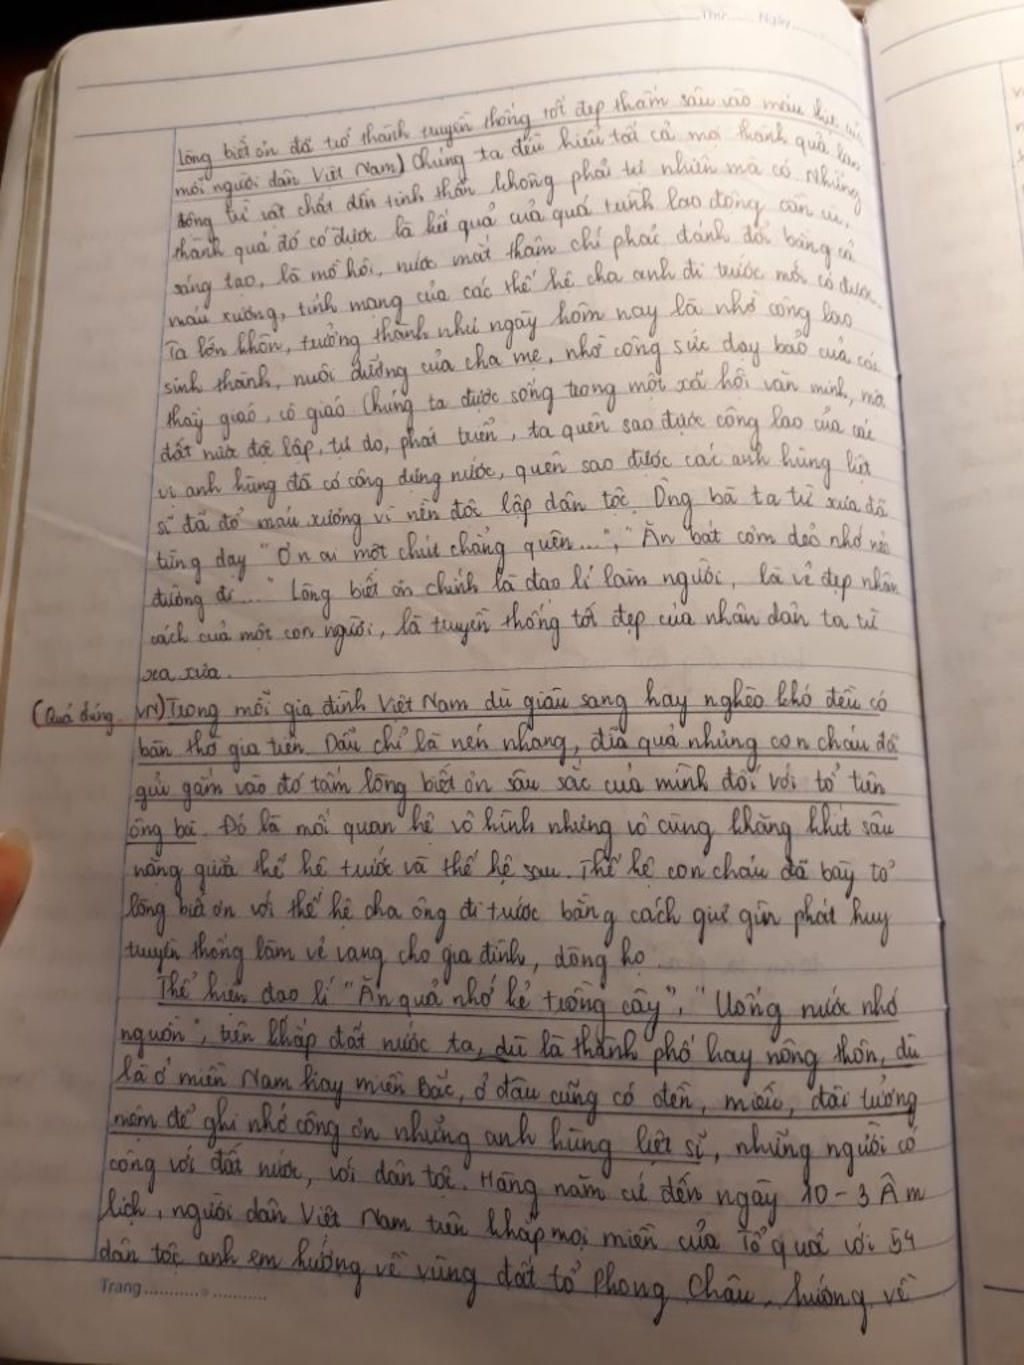 Thứ...... Ngày............
Lòng biết ơn đã trở thành truyền thống tốt đẹp thấm sâu vào máu thịt của
mỗi người dân Việt Nam) Chúng ta đều hiểu tất cả mọi thành quả lao
động từ vật chất đến tinh thần không phải tự nhiên mà có. Những
thành quả đó có được là kết quả của quá trình lao động cần cù,
sáng tạo, là mồ hôi, nước mắt thậm chí phải đánh đổi bằng cả
máu xương, tính mạng của các thế hệ cha anh đi trước mới có được.
Ta lớn khôn, trưởng thành như ngày hôm nay là nhờ công lao
sinh thành, nuôi dưỡng của cha mẹ, nhờ công sức dạy bảo của các
thầy giáo, cô giáo. Chúng ta được sống trong một xã hội văn minh, một
đất nước độc lập, tự do, phát triển, ta quên sao được công lao của các
vị anh hùng đã có công dựng nước, quên sao được các anh hùng liệt
sĩ đã đổ máu xương vì nền độc lập dân tộc. Ông bà ta từ xưa đã
từng dạy "Ơn ai một chút chẳng quên...", "Ăn bát cơm dẻo nhớ nẻo
đường đi..." Lòng biết ơn chính là đạo lí làm người, là vẻ đẹp nhân
cách của một con người, là truyền thống tốt đẹp của nhân dân ta từ
xa xưa.
(Quả đúng VN) Trong mỗi gia đình Việt Nam dù giàu sang hay nghèo khó đều có
bàn thờ gia tiên. Dẫu chỉ là nén nhang, đĩa quả nhưng con cháu đã
gửi gắm vào đó tấm lòng biết ơn sâu sắc của mình đối với tổ tiên
ông bà. Đó là mối quan hệ vô hình nhưng vô cùng khăng khít sâu
nặng giữa thế hệ trước và thế hệ sau. Thế hệ con cháu đã bày tỏ
lòng biết ơn với thế hệ cha ông đi trước bằng cách giữ gìn phát huy
truyền thống làm vẻ vang cho gia đình, dòng họ.
Thể hiện đạo lí "Ăn quả nhớ kẻ trồng cây", "Uống nước nhớ
nguồn", trên khắp đất nước ta, dù là thành phố hay nông thôn, dù
là ở miền Nam hay miền Bắc, ở đâu cũng có đền, miếu, đài tưởng
niệm để ghi nhớ công ơn những anh hùng liệt sĩ, những người có
công với đất nước, với dân tộc. Hàng năm cứ đến ngày 10-3 Âm
lịch, người dân Việt Nam trên khắp mọi miền của Tổ quốc với 54
dân tộc anh em hướng về vùng đất tổ Phong Châu, hướng về
Trang......................